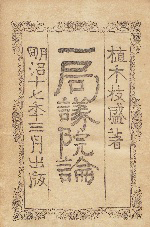 植木枝盛著
一局議院論
明治十七年三月出版